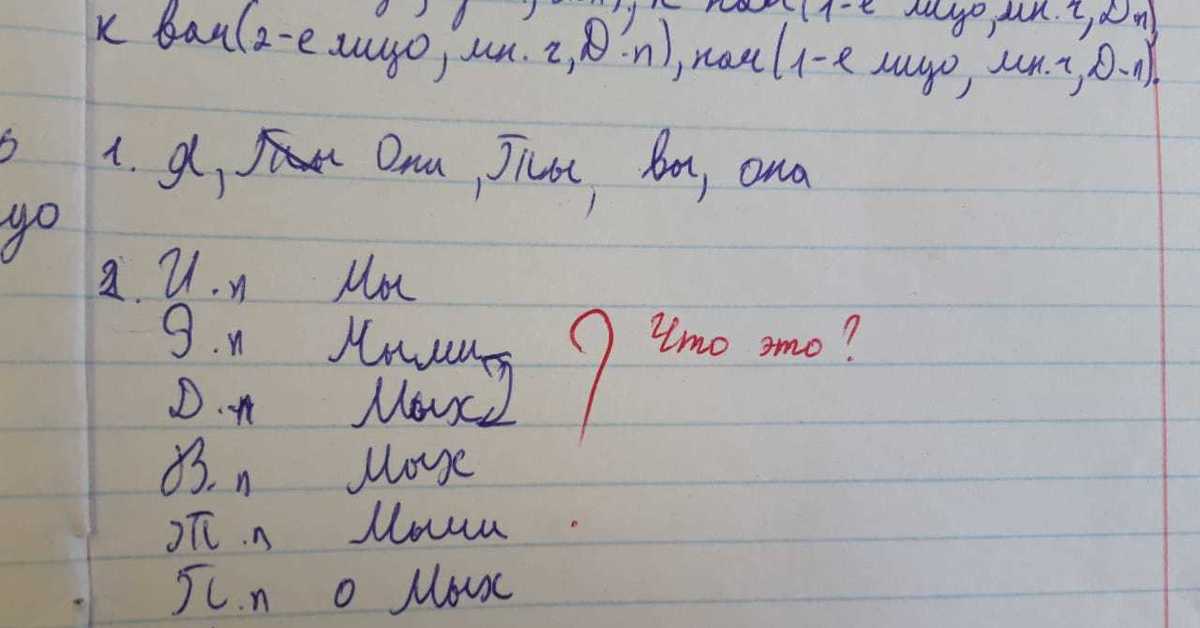 к нам (1-е лицо, мн.ч, Д.п)
к вам (2-е лицо, мн. ч, Д.п), нам (1-е лицо, мн.ч, Д.п).
1. Я, Ты Они, Ты, вы, она
цо
2. И.п Мы
Р.п Мыми Что это?
Д.п Мых
В.п Мых
Т.п Мыми
П.п о Мых